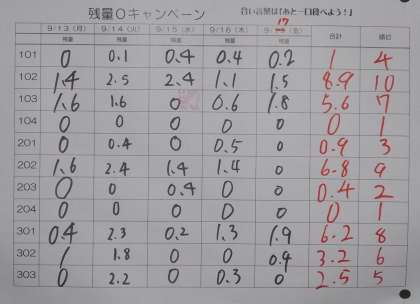 残量0キャンペーン 合い言葉は「あと一口食べよう!」
9/13(月) 9/14(火) 9/15(水) 9/16(木) 9/17(金) 合計 順位
残量 残量 残量 残量 残量
101 0 0.1 0.4 0.4 0.2 1 4
102 1.4 2.5 2.4 1.1 1.5 8.9 10
103 1.6 1.6 0 0.6 1.8 5.6 7
104 0 0 0 0 0 0 1
201 0 0.4 0 0.5 0 0.9 3
202 1.6 2.4 1.4 1.4 0 6.8 9
203 0 0 0.4 0 0 0.4 2
204 0 0 0 0 0 0 1
301 0.4 2.3 0.2 1.3 1.9 6.2 8
302 1 1.8 0 0 0.4 3.2 6
303 0 2.2 0 0.3 0 2.5 5